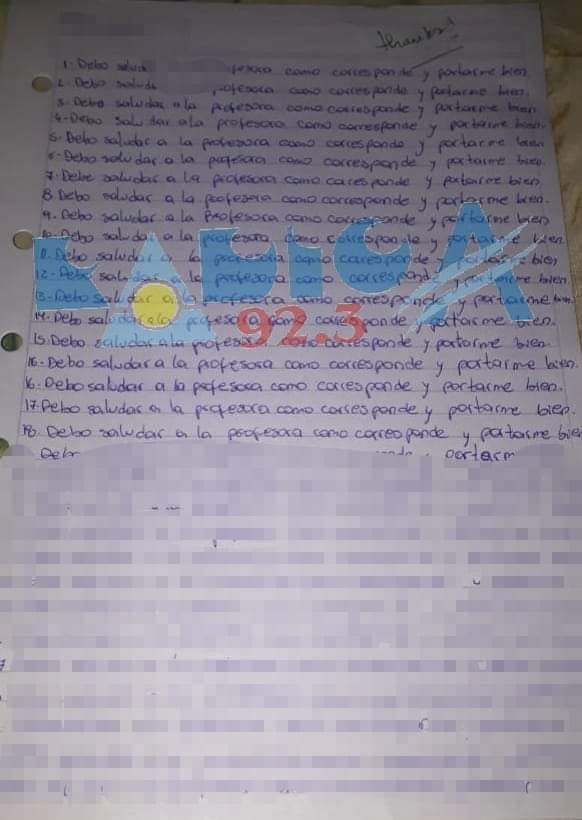 thanks!
1. Debo salud fesora como corresponde y portarme bien.
2. Debo saluda ofesora como corresponde y portarme bien.
3. Debo saludar a la profesora como corresponde y portarme bien
4. Debo saludar a la profesora como corresponde y portarme bien.
5. Debo saludar a la profesora como corresponde y portarme bien
6. Debo saludar a la profesora como corresponde y portarme bien.
7. Debe saludar a la profesora como corresponde y portarme bien
8. Debo saludar a la profesora como corresponde y portarme bien.
9. Debo saludar a la Profesora como corresponde y portarme bien
10. Debo saludar a la profesora como corresponde y portarme bien
11. Debo saludar a la profesora como corresponde y portarme bien
KADICA
12. Debo saludar a la profesora como corresponde y portarme bien.
13. Debo saludar a la profesora como corresponde y portarme bien.
14. Debo saludar a la profesora como corresponde y portarme bien.
92.3
15. Debo saludar a la profesora como corresponde y portarme bien
16. Debo saludar a la profesora como corresponde y portarme bien.
16. Debo saludar a la profesora como corresponde y portarme bien.
17. Debo saludar a la profesora como corresponde y portarme bien.
18. Debo saludar a la profesora como corresponde y portarme bien